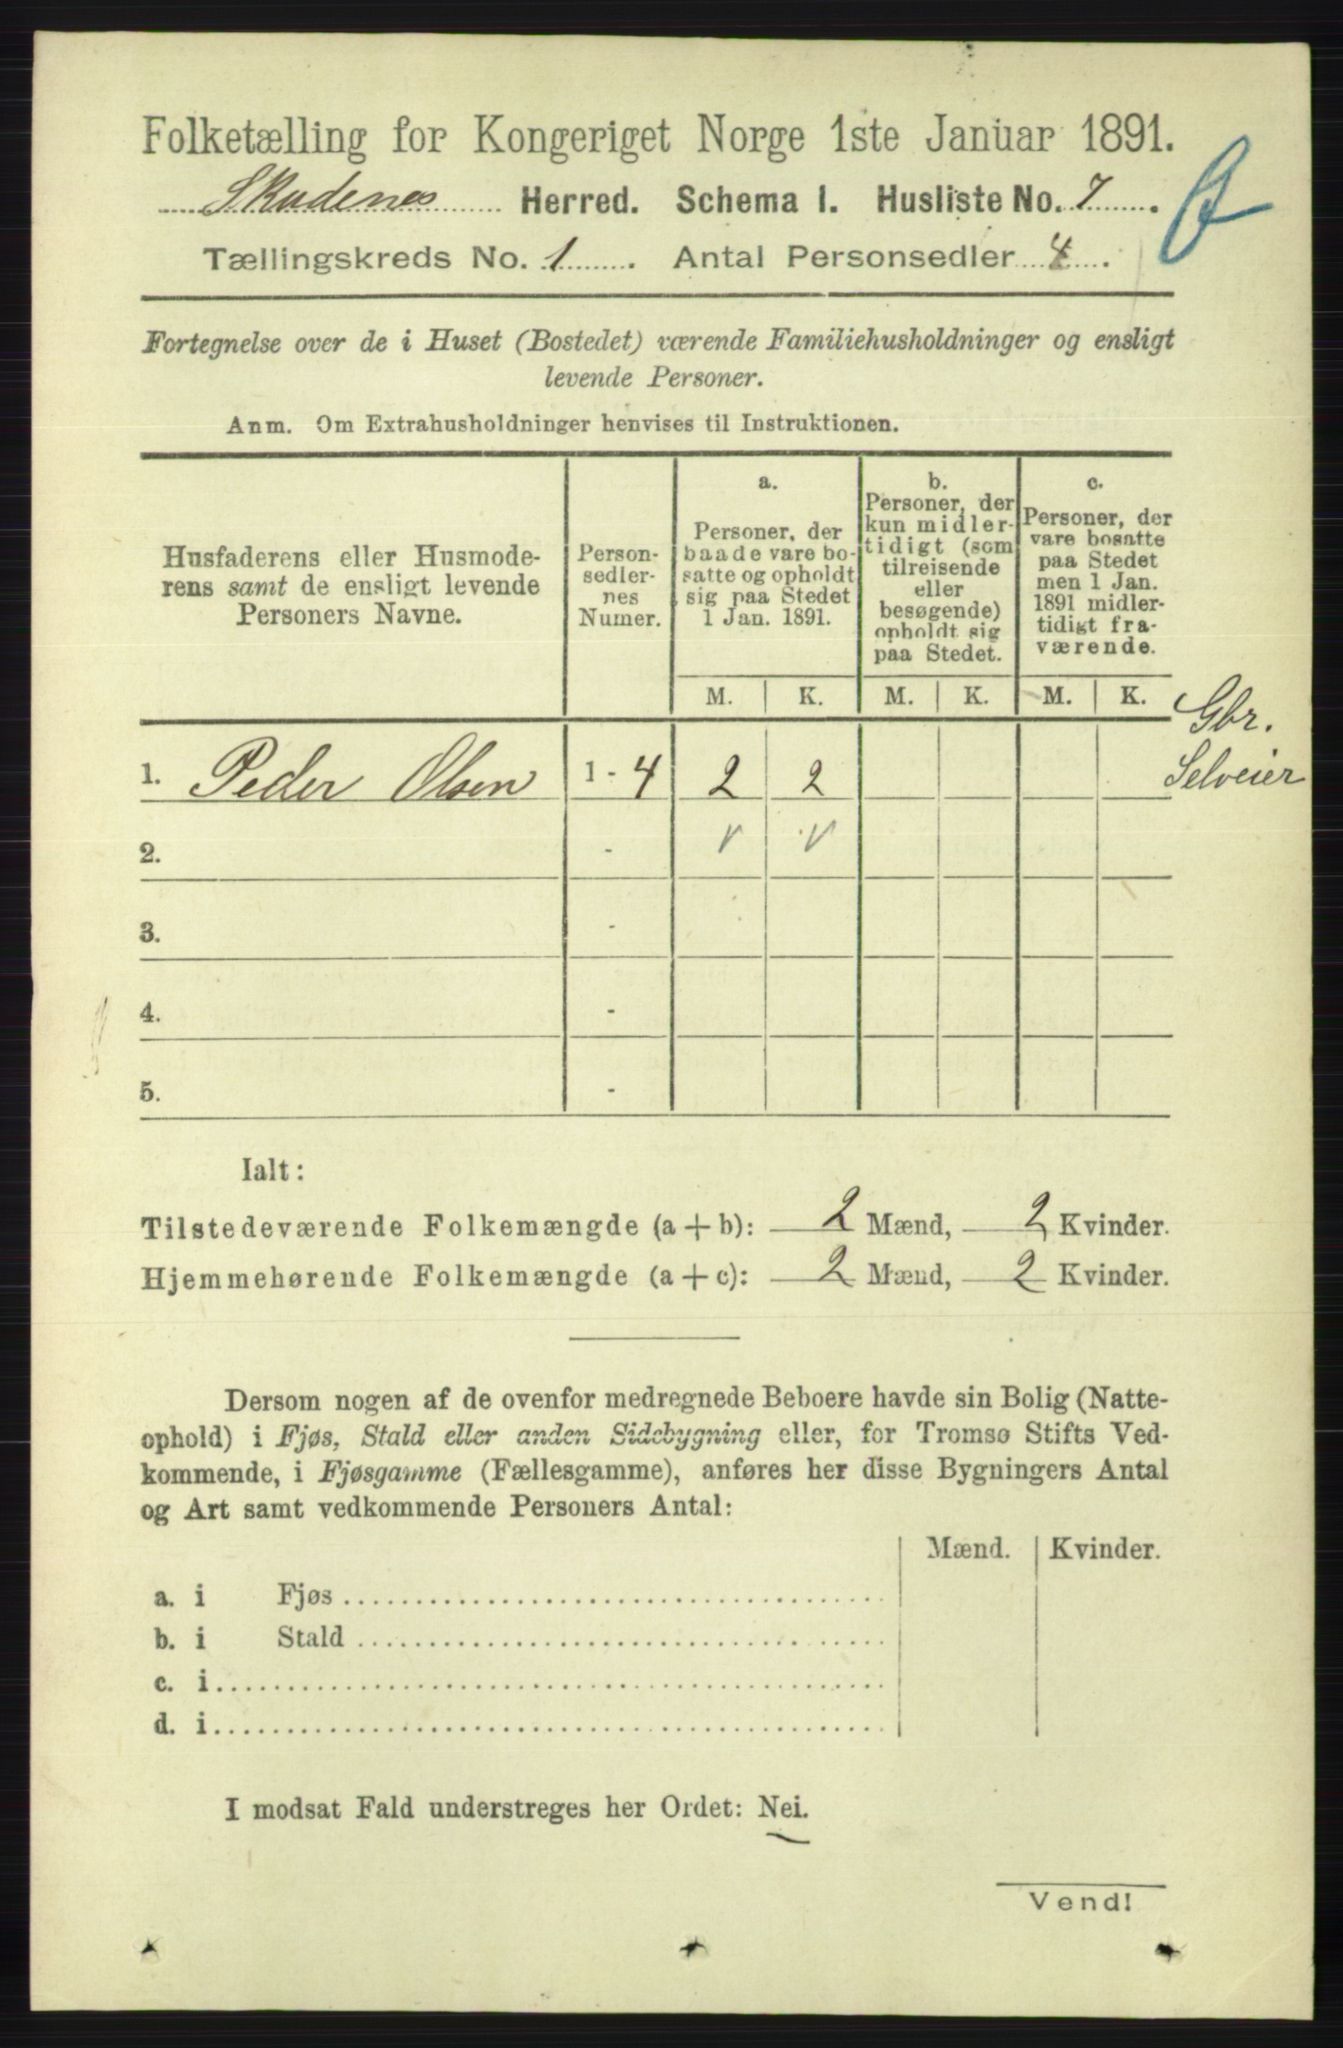 Folketælling for Kongeriget Norge 1ste Januar 1891.
Skudenes Herred. Schema I. Husliste No. 7.
Tællingskreds No. 1. Antal Personsedler 4.
Fortegnelse over de i Huset (Bostedet) værende Familiehusholdninger og ensligt
levende Personer.
Anm. Om Extrahusholdninger henvises til Instruktionen.
Husfaderens eller Husmode-
rens samt de ensligt levende
Personers Navne.
Person-
sedler-
nes
Numer.
a.
Personer, der
baade vare bo-
satte og opholdt
sig paa Stedet
1 Jan. 1891.
b.
Personer, der
kun midler-
tidigt (som
tilreisende
eller
besøgende)
opholdt sig
paa Stedet.
c.
Personer, der
vare bosatte
paa Stedet
men 1 Jan.
1891 midler-
tidigt fra-
værende.
M. K. M. K. M. K.
Gbr.
1. Peder Olsen 1 - 4 2 2 Selveier
2. -
3. -
4. -
5. -
Ialt:
Tilstedeværende Folkemængde (a + b): 2 Mænd, 2 Kvinder.
Hjemmehørende Folkemængde (a + c): 2 Mænd, 2 Kvinder.
Dersom nogen af de ovenfor medregnede Beboere havde sin Bolig (Natte-
ophold) i Fjøs, Stald eller anden Sidebygning eller, for Tromsø Stifts Ved-
kommende, i Fjøsgamme (Fællesgamme), anføres her disse Bygningers Antal
og Art samt vedkommende Personers Antal:
Mænd. Kvinder.
a. i Fjøs
b. i Stald
c. i
d. i
I modsat Fald understreges her Ordet: Nei.
Vend!